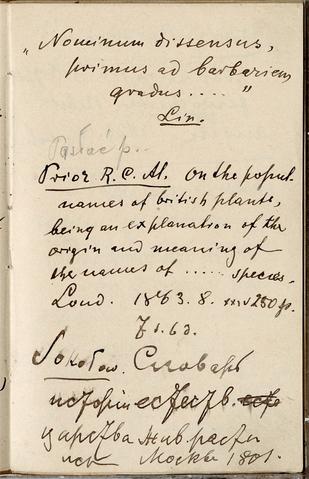 „Nominum dissensus,
primus ad barbariem
gradus....."
Lin.
Prior R. C. Al. On the popul.
names of british plants,
being an explanation of the
origin and meaning of
the names of ...... species.
Lond. 1863. 8. 250 p.
7 s. 6 d.
Соколов. Словарь
истории естеств.
царства
Москва 1801.